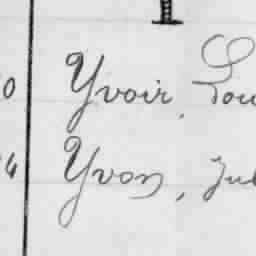 0 Yvoir, Lou
4 Yvon, Jul